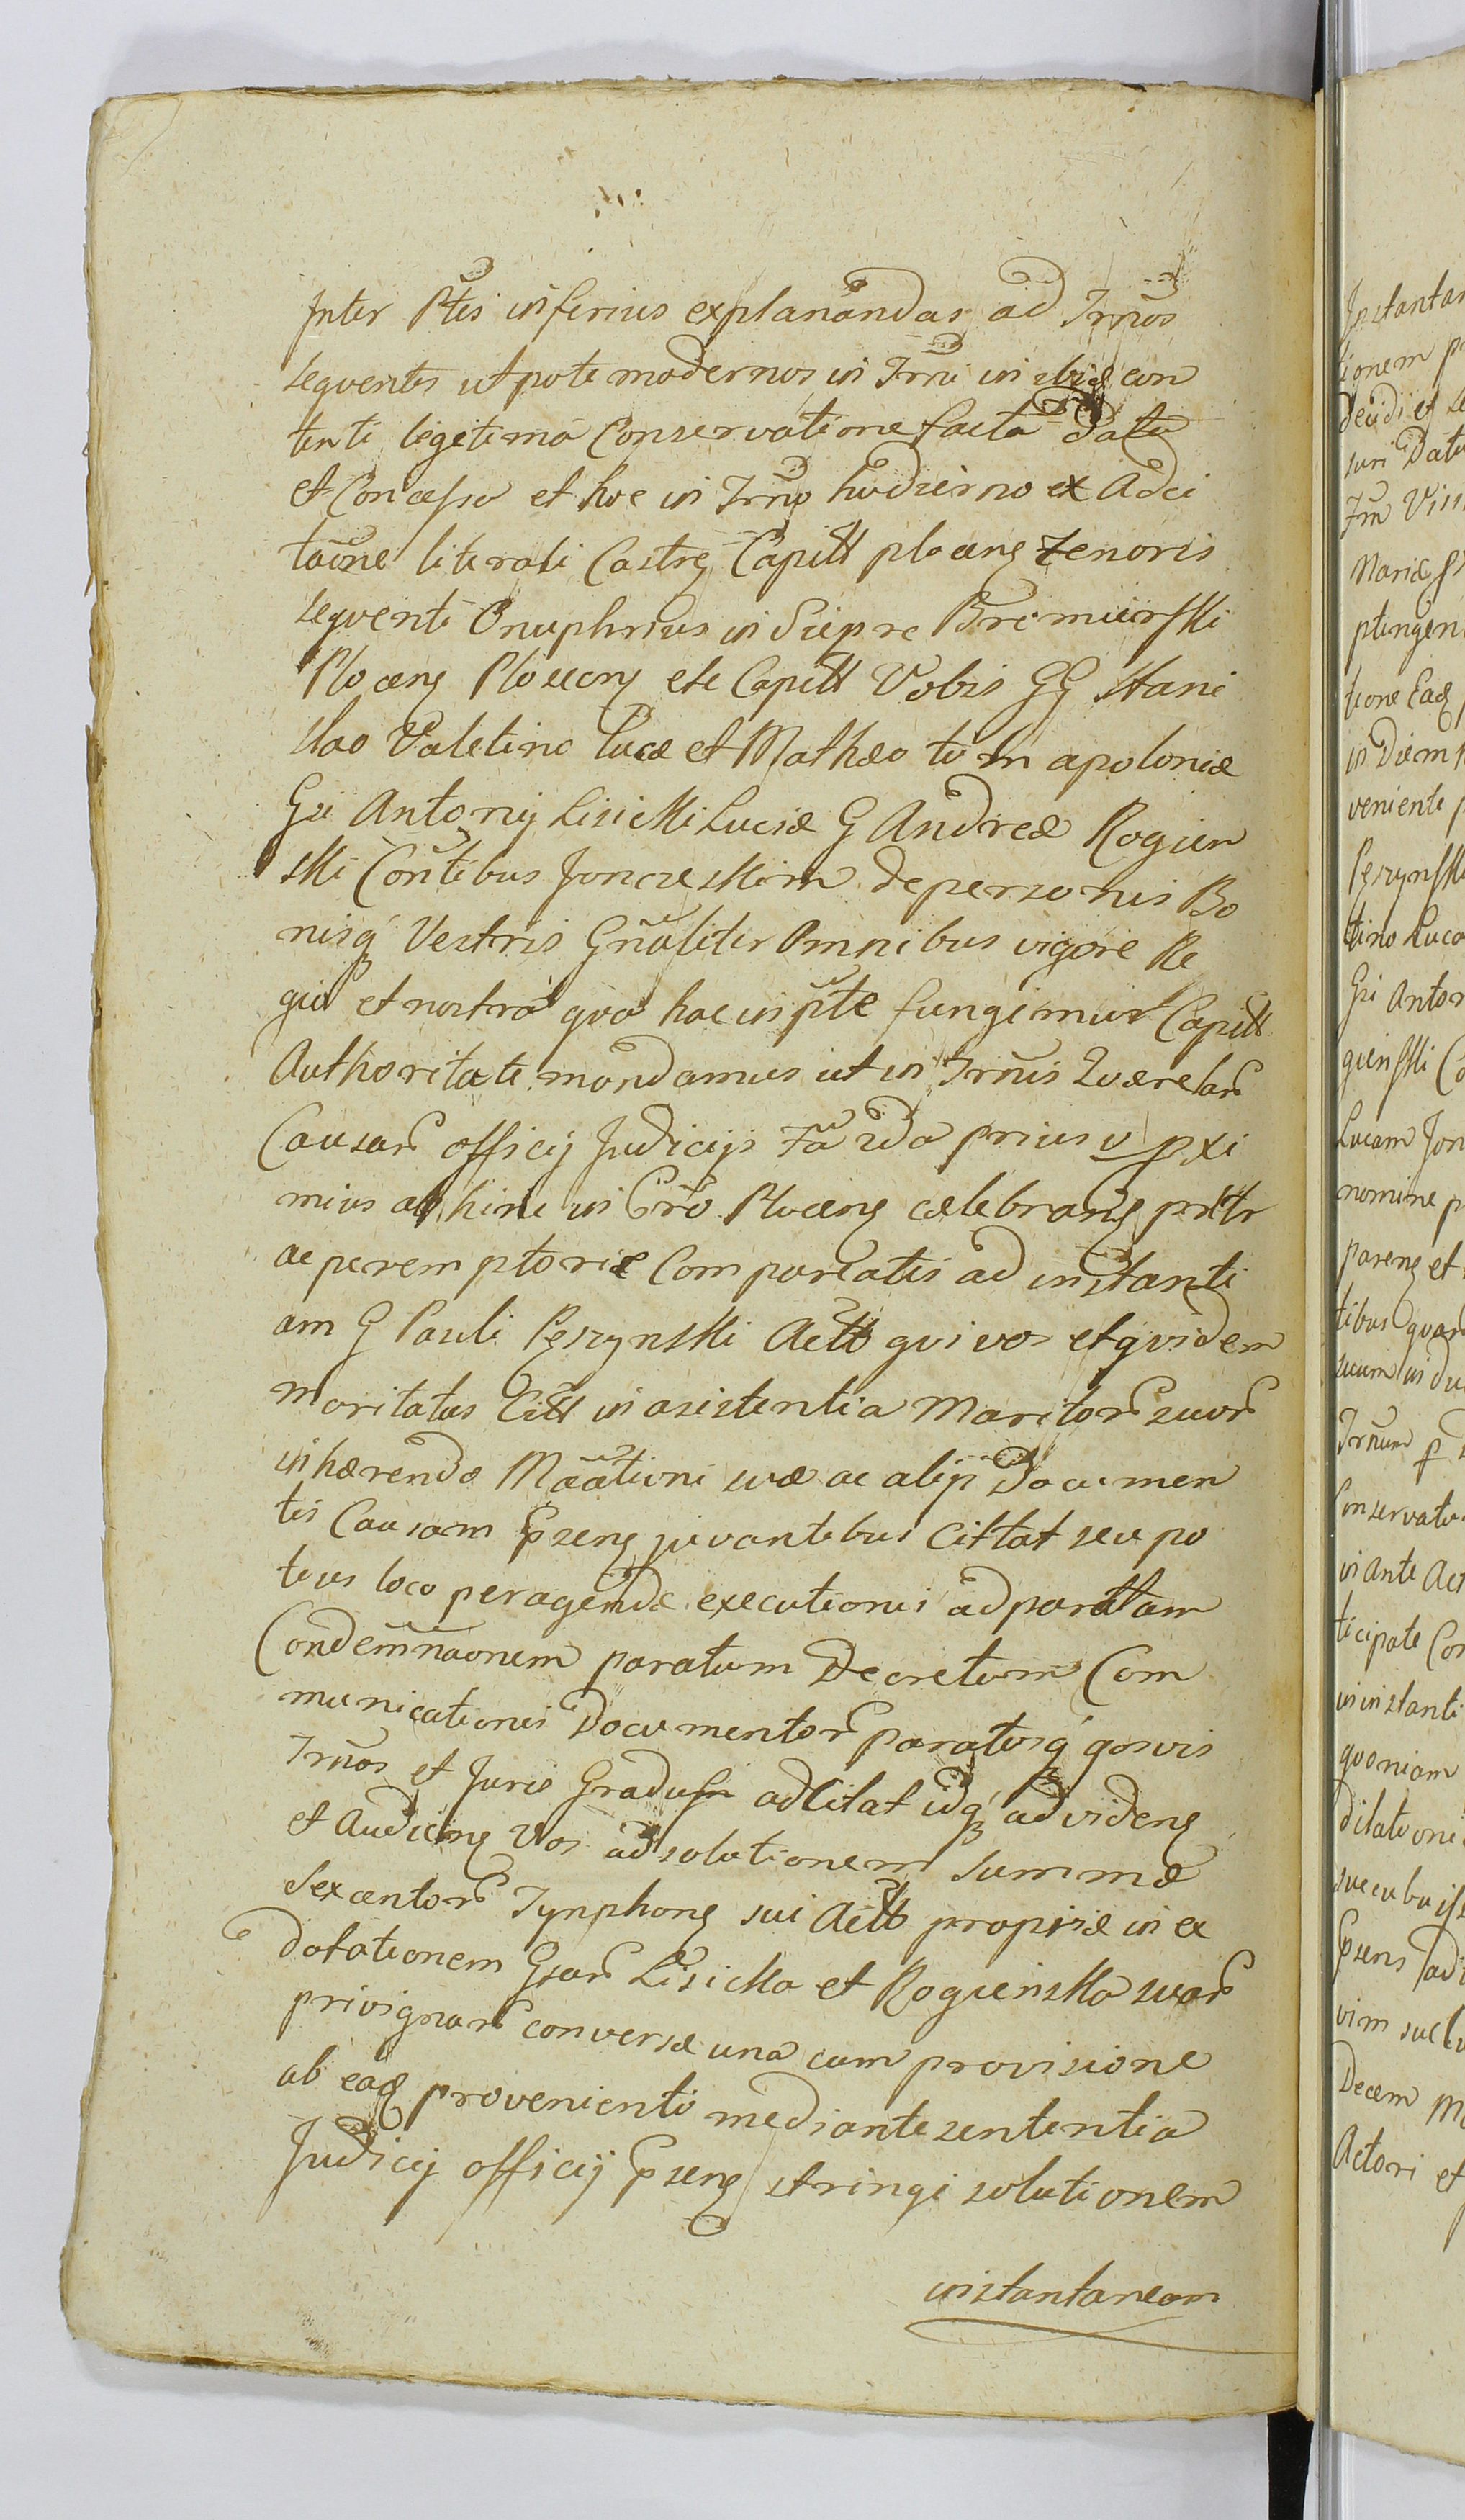 Inter Ptes inferius explanandas ad Trnos
sequentes utpote modernos in Trni in ibid con
tenti legitima Conservatione facta Datu
et Concesso et hoc in Trno hodierno ex Adci
taone literali Castren Capitt plocen tenoris
sequenti Onuphrius in Sieprc Bromierski
Plocen Ploscen ete Capitt Vobis GG Stani
slao Valetino Lucæ et Mathæo tum apoloniæ
Gsi Antonij Lisicki Luciæ G Andreæ Rogien
ski Contibus Jonczeskim de personis Bo
nisq Vestris Gnaliter Omnibus vigore Re
gia et nostra qva hac in pte fungimur Capitt
Authoritate mandamus ut in Trnis Qværelar
Causar officij Judicijs Fa 2da prius v pxi
mius abhinc in Gro Plocen cælebran pntr
ac peremptorie Compareatis ad instanti
am G Pauli Pęszynski Actt qvi vos et qvidem
maritatas Citt in asistentia Maritor suor
inhærendo Maationi suæ ac alijs Documen
tis Causam Epsen juvantibus Cittat seu po
tius loco peragendæ executionis ad paratam
Condemnaonem paratum Decretum Com
municationis Documentor paratosq qosvis
Trnos et Juris Gradus adcitat idq ad viden
et Audien Vos ad solutionem Summæ
Sexcentor Tynphon sui Actt propriæ in ex
dotationem Gsar Lisicka et Rogienska suar
privignar conversæ una cum provisione
ab ead provenienti mediante sententia
Judicij officij Epsen stringi solutionem
instantaneam
Instantan
tionem p
suri Datu
Trn
Mariæ
ptingen
tione Ead
in Diem
veniente p
Pęszynski
tino Luca
Gsi Anton
gienski
Lucam Jon
nomine p
paren et
tibus qvar
suum in du
Trnum p
Conservatio
in ante Act
ticipate Con
in instanti
qvoniam
dilationi
sucubuiss
Epsens ad
vim suc
Decem M
Actori et